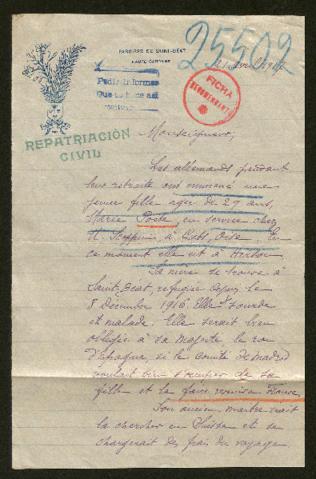 PAROISSE DE SAINT-BÉAT
HAUTE-GARONNE
25502
Avril 1917
Pedir informes
FICHA
REPATRIACIÓN
CIVIL
Monseigneur,
Les allemands pendant
leur retraite ont emmené une
jeune fille agée de 27 ans,
Marie Poste en service chez
M. à Oise. En
ce moment elle est à
Sa mère se trouve à
Saint-Béat, refugiée depuis le
8 décembre 1916. Elle sourde
et malade. Elle serait bien
obligée à sa majesté le roi
d'Espagne, si le Comité de Madrid
voulait bien s'occuper de sa
fille et la faire venir en France.
Son ancien maitre irait
la chercher en Suisse et se
chargerait des frais du voyage.